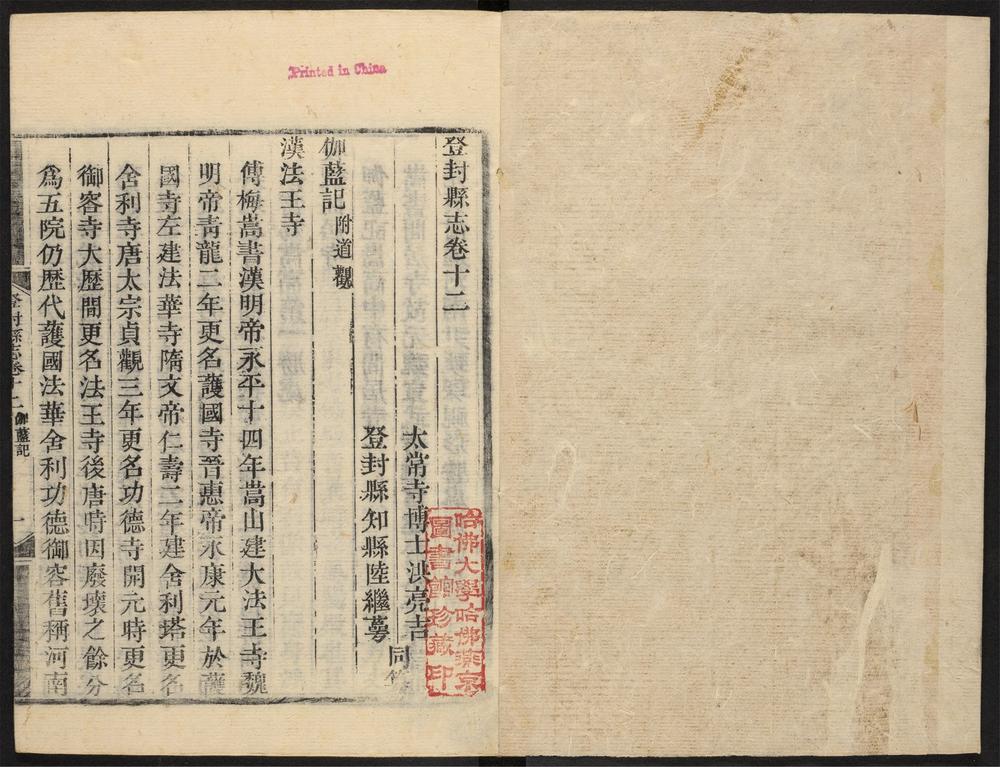 Printed in China
登封縣志卷十二
太常寺博士洪亮吉
登封縣知縣陸繼萼
同
伽藍記附道觀
漢法王寺
傅梅嵩書漢明帝永平十四年嵩山建大法王寺魏
明帝靑龍二年更名護國寺晉惠帝永康元年於護
國寺左建法華寺隋文帝仁壽二年建舍利塔更名
舍利寺唐太宗貞觀三年更名功德寺開元時更名
御容寺大歷間更名法王寺後唐時因廢壞之餘分
爲五院仍歷代護國法華舍利功德御容舊稱河南
登封縣志卷十二
伽藍記
一
哈佛大學哈佛燕京
圖書館珍藏印